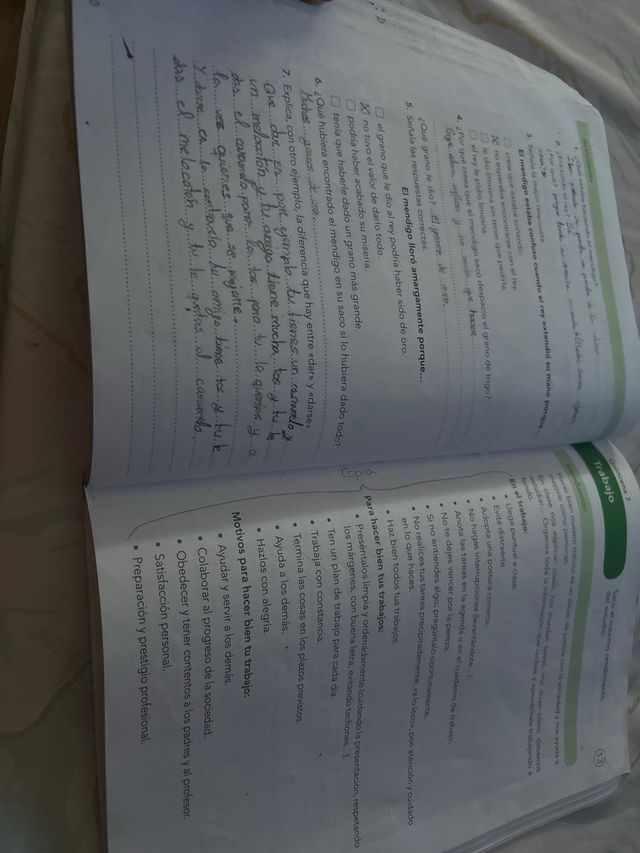 3. Señala la mejor respuesta.
El mendigo estaba confuso cuando el rey extendió su mano porque
creía que estaba soñando.
no esperaba encontrarse con el rey.
le dio limosna sin tener que pedirla.
el rey le pidió limosna.
4. ¿Por qué crees que el mendigo sacó despacio el grano de trigo?
¿Qué grano le dio? El grano de
5. Señala las respuestas correctas.
El mendigo lloró amargamente porque...
el grano que le dio al rey podría haber sido de oro.
no tuvo el valor de darlo todo.
podría haber acabado su miseria.
tenía que haberle dado un grano más grande.
6. ¿Qué hubiera encontrado el mendigo en su saco si lo hubiera dado todo?
Muchos granos de oro.
7. Explica, con otro ejemplo, la diferencia que hay entre «dar» y «darse».
Que dar es por ejemplo tu tienes un caramelo y
un melocotón y tu amigo tiene mucha tos y tu le
das el caramelo para la tos pero tu lo querias y a
la vez quieres que se mejore.
Y darse es lo contrario tu amigo tiene tos y tu le
das el melocotón y tu te quedas el caramelo.
Trabajo
Saca el máximo rendimiento
del estudio
13
En el trabajo:
• Llega puntual a clase.
• Evita distraerte.
• Adopta una postura correcta.
• No hagas interrupciones (levantándote...).
• Anota las tareas en la agenda o en el cuaderno de trabajo.
• No te dejes vencer por la pereza.
• Si no entiendes algo, pregúntalo oportunamente.
• No realices tus tareas precipitadamente, «a lo loco», pon atención y cuidado
en lo que haces.
• Haz bien todos tus trabajos.
Copia
Para hacer bien tus trabajos:
• Preséntalos limpia y ordenadamente (cuidando la presentación, respetando
los márgenes, con buena letra, evitando tachones...).
• Ten un plan de trabajo para cada día.
• Trabaja con constancia.
• Termina las cosas en los plazos previstos.
• Ayuda a los demás.
• Hazlos con alegría.
Motivos para hacer bien tu trabajo:
• Ayudar y servir a los demás.
• Colaborar al progreso de la sociedad.
• Obedecer y tener contentos a los padres y al profesor.
• Satisfacción personal.
• Preparación y prestigio profesional.